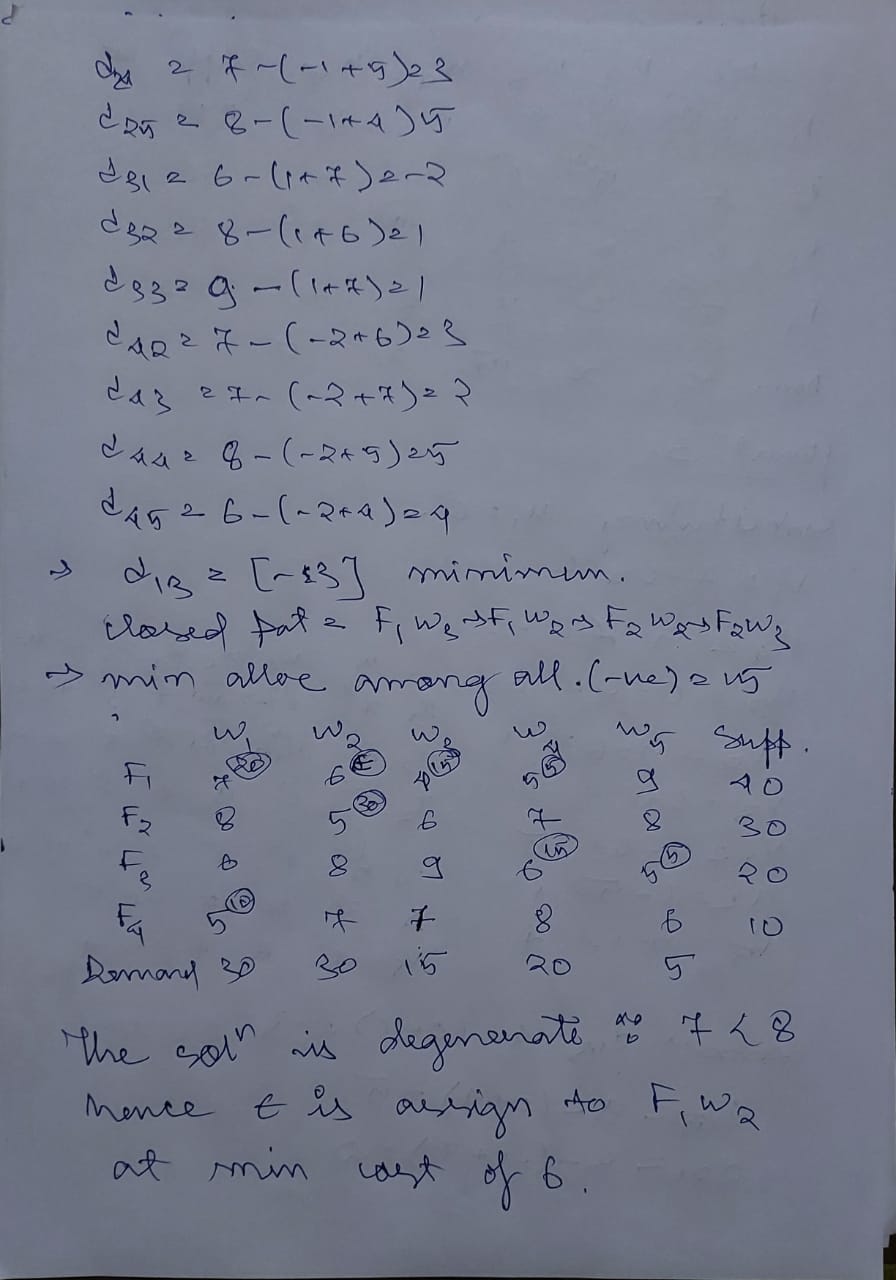 d24 = 7-(-1+5)=3
d25 = 8-(-1+4)=5
d31 = 6-(1+7)=-2
d32 = 8-(1+6)=1
d33 = 9-(1+7)=1
d42 = 7-(-2+6)=3
d43 = 7-(-2+7)=2
d44 = 8-(-2+5)=5
d45 = 6-(-2+4)=4
⇒ d13 = [-3] minimum.
closed pat = F1W3→F1W2→F2W2→F2W3
⇒ min alloc among all (-ve) = 15
W1 W2 W3 W4 W5 Supp.
F1 7 (20) 6 (ε) 4 (15) 5 (5) 9 40
F2 8 5 (30) 6 7 8 30
F3 6 8 9 6 (15) 5 (5) 20
F4 5 (10) 7 7 8 6 10
Demand 30 30 15 20 5
The solⁿ is degenerate as 7 < 8
hence ε is assign to F1W2
at min cost of 6.